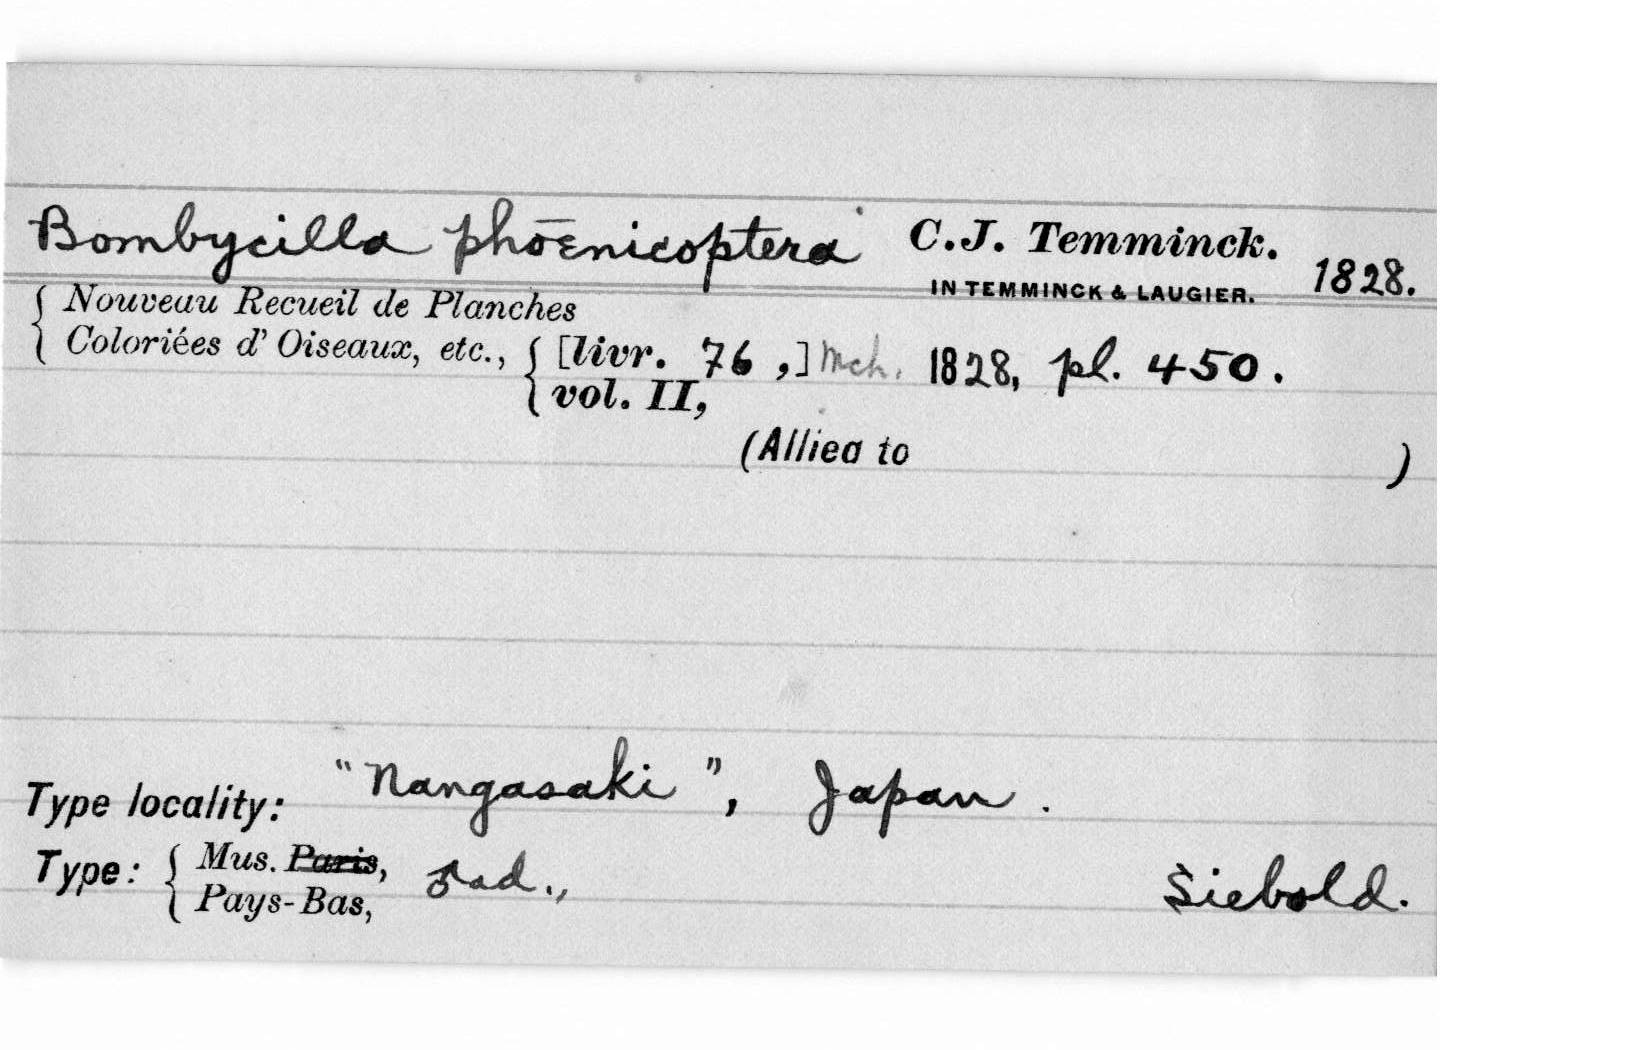 Bombycilla phōenicoptera C.J. Temminck. 1828.
IN TEMMINCK & LAUGIER.
Nouveau Recueil de Planches
Coloriées d' Oiseaux, etc., [livr. 76 ,] Mch. 1828, pl. 450.
vol. II,
(Allied to )
Type locality: "Nangasaki", Japan.
Type: Mus. Paris, ♂ad., Siebold.
Pays-Bas,